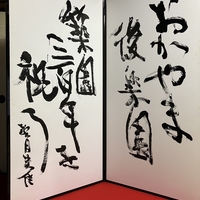 おかやま
後楽園
築園
三百年を
祝う